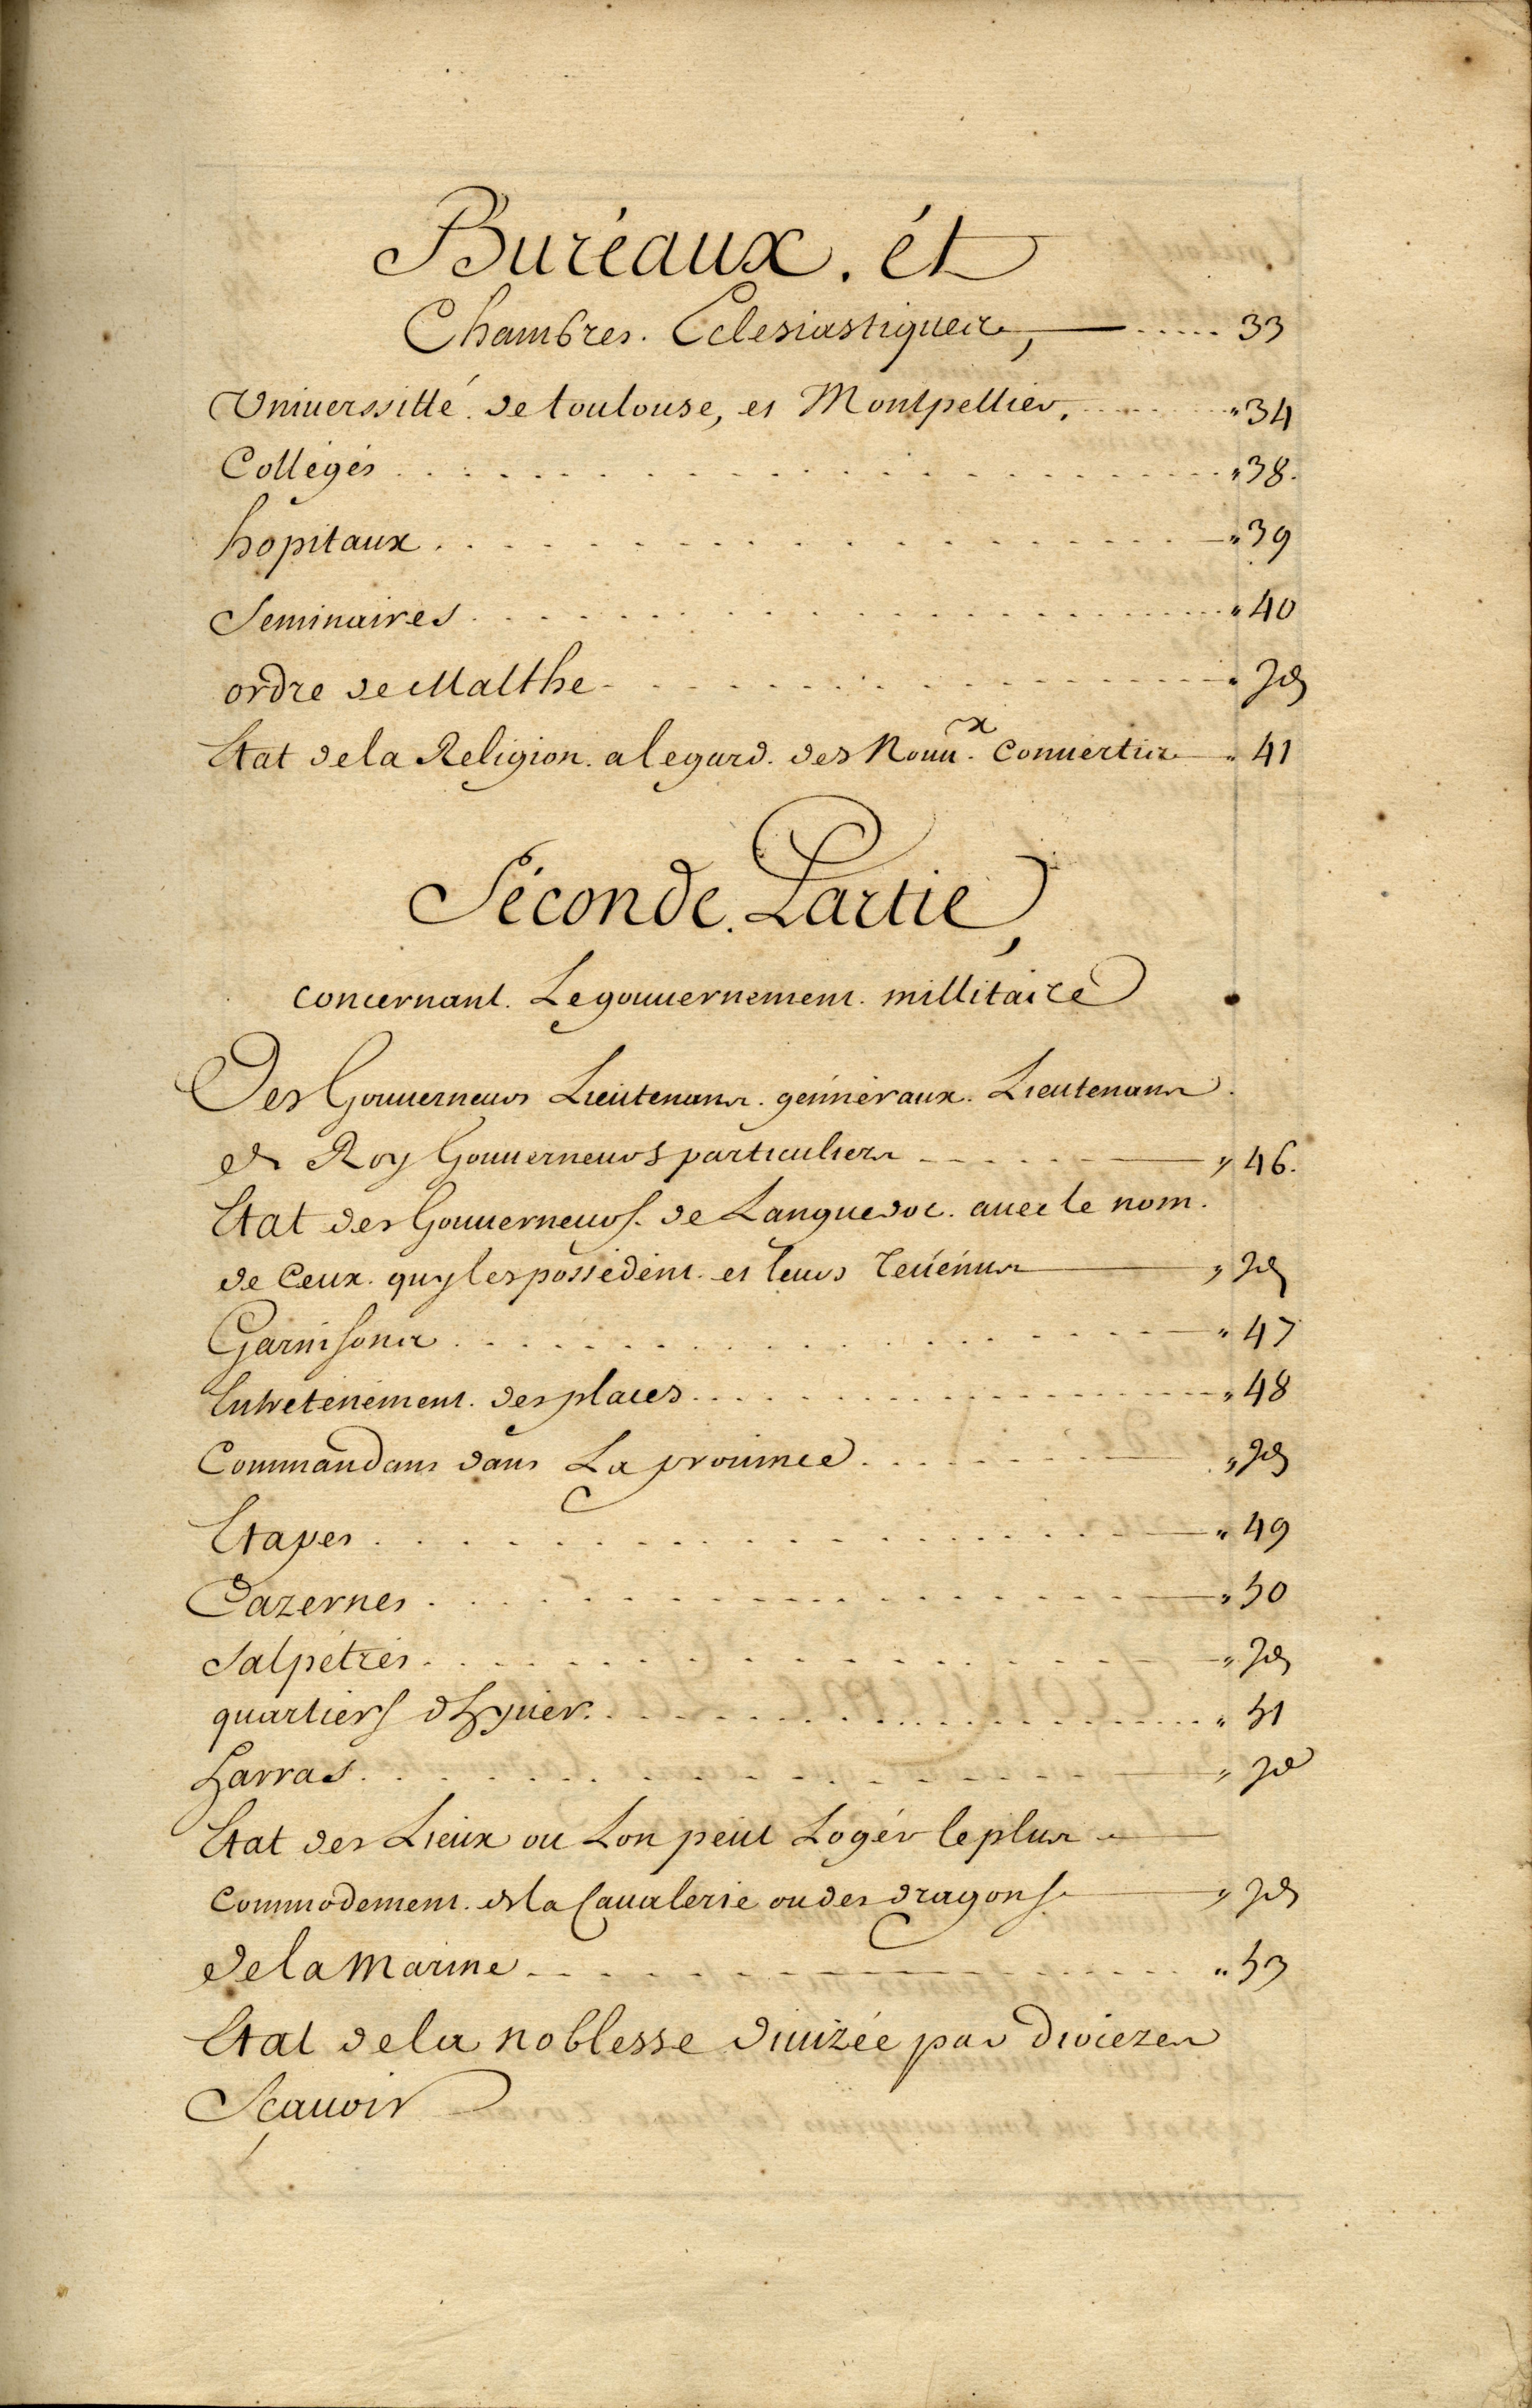 Buréaux. ét
Chambres. Eclesiastiques, 33
Uniuerssitté. de toulouse, et Montpellier, 34
Colléges 38.
hopitaux 39
Seminaires 40
ordre de Malthe Id
Etat de la Religion. a legard. des Nouu.x Conuertis 41
Séconde. Partie,
concernant. Le gouuernement. millitaire
Des Gouuerneurs Lieutenans. génnéraux. Lieutenans.
de Roy Gouuerneurs particuliers 46.
Etat des Gouuerneurs. de Languedoc. auec le nom.
de Ceux. quy les possédent. et leurs reuénus Id
Garnisons 47
Entreténément. des places 48
Commandans dans La prouince Id
Etapes 49
Cazernes 50
Salpétres Id
quartiers dhyuer. 51
harras Id
Etat des Lieux ou Lon peut Logér le plus
Commodement. de la Caualerie ou des dragons Id
de la Marine 53
Etat de la noblesse diuizée par diocezes
Scauoir